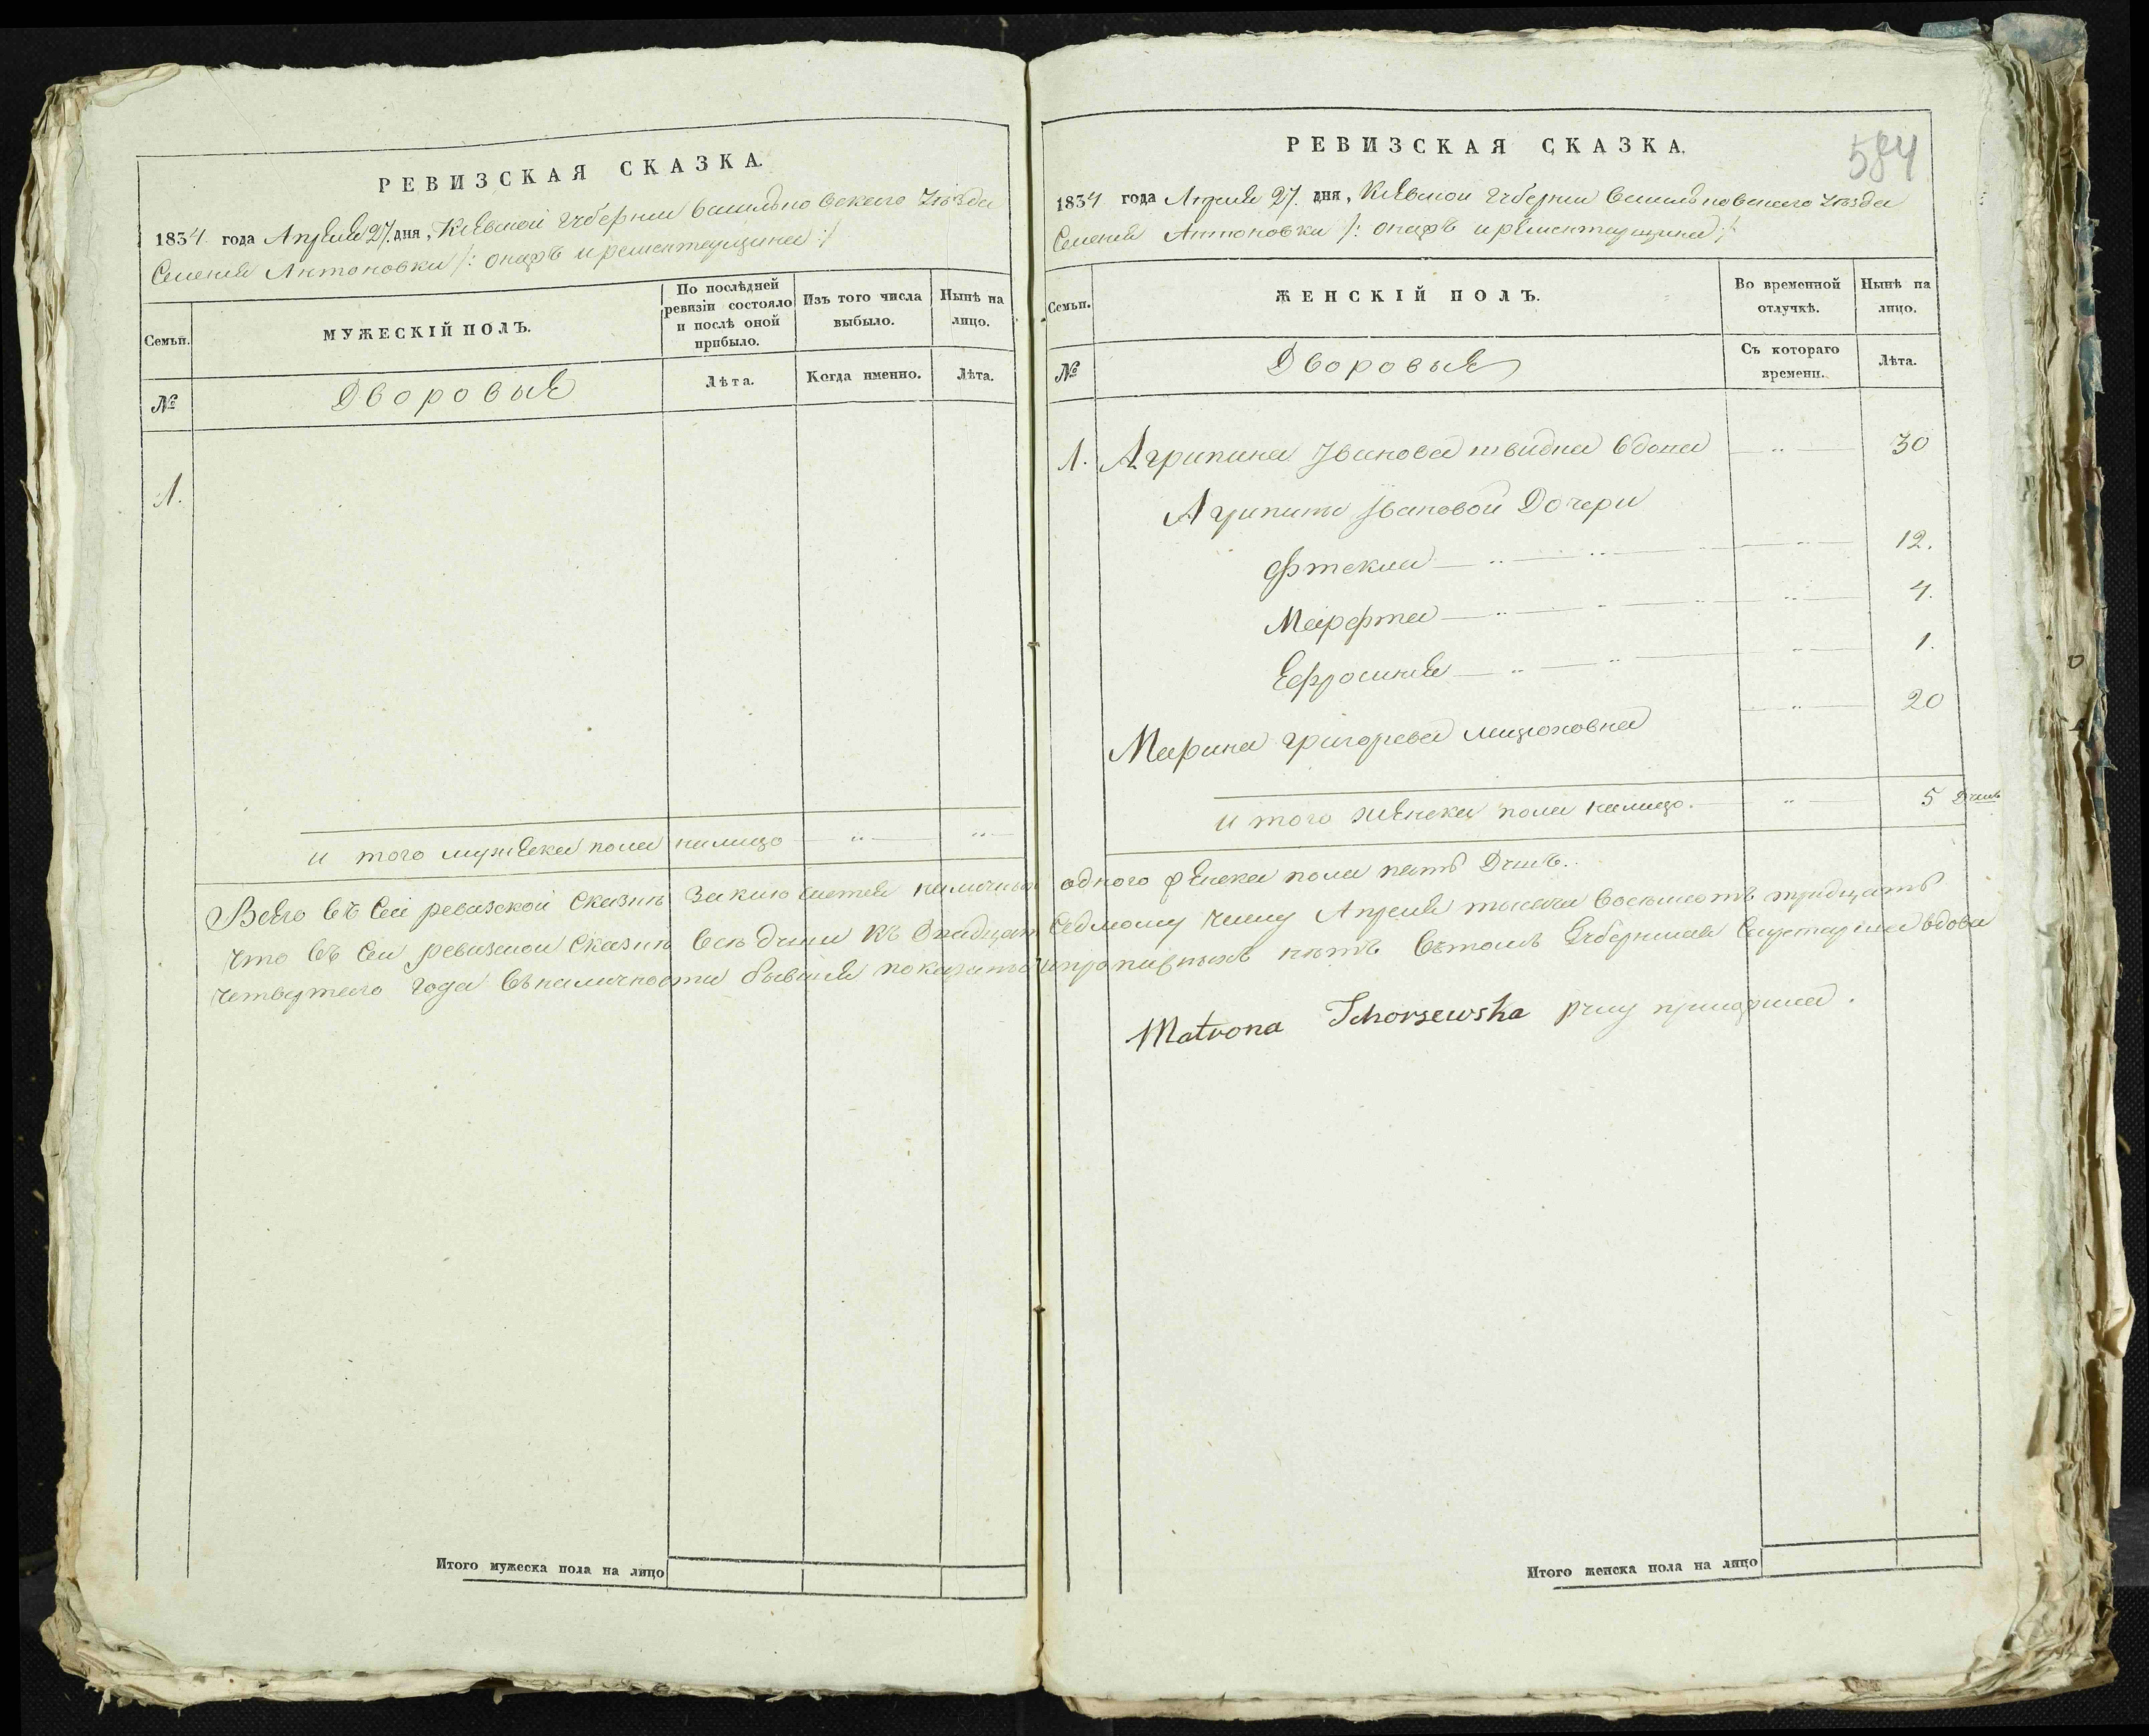 РЕВИЗСКАЯ СКАЗКА.
1834 года Апреля 27. дня, Киевской Губернии васильковского Уезда
Селения Антоновки
Семьи.
МУЖЕСКІЙ ПОЛЪ.
По послѣдней ревизіи состояло и послѣ оной прибыло.
Изъ того числа выбыло.
Нынѣ на лицо.
№
Дворовые
Лѣта.
Когда именно.
Лѣта.
1.
и того мужеска пола налицо
Всего въ сей ревизской сказке заключается наличных
что въ сей ревизской сказке все души къ двадцать
четвертого года въ наличности бывшие показаны
Итого мужеска пола на лицо
584
РЕВИЗСКАЯ СКАЗКА.
1834 года Апреля 27. дня, Киевской Губернии васильковского Уезда
Селения Антоновки
Семьи.
ЖЕНСКІЙ ПОЛЪ.
Во временной отлучкѣ.
Нынѣ на лицо.
№
Дворовые
Съ котораго времени.
Лѣта.
1. Агрипина Иванова вдова 30
Агрипины Ивановой Дочери
Фтекла 12.
Марфта 4.
Ефросиния 1.
Марина григорева 20
и того женска пола налицо. 5 Душъ
одного женска пола пять Душъ.
седмому числу Апреля тысяча восемсотъ тридцать
и прописныхъ нетъ въ томъ Губернская Секретарша вдова
Matrona руку приложила.
Итого женска пола на лицо